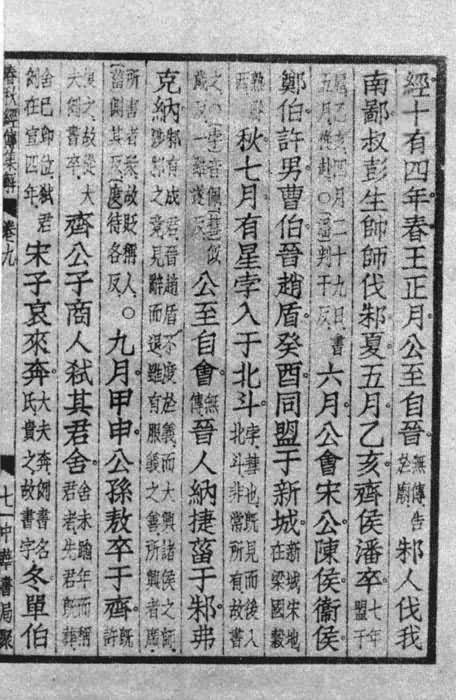 經十有四年春王正月公至自晉無傳告於廟邾人伐我
南鄙叔彭生帥師伐邾夏五月乙亥齊侯潘卒七年盟于
扈乙亥四月二十九日書五月從赴○潘判干反六月公會宋公陳侯衛侯
鄭伯許男曹伯晉趙盾癸酉同盟于新城新城宋地在梁國穀
熟縣西秋七月有星孛入于北斗孛彗也既見而後入北斗非常所有故書
之○孛音佩彗似歲反一雖遂反公至自會無傳晉人納捷菑于邾弗
克納邾有成君晉趙盾不度於義而大興諸侯之師涉邾之竟見辭而退雖有服義之善所興者廣
所害者衆故貶稱人○菑側其反度待各反九月甲申公孫敖卒于齊既許
復之故從大夫例書卒齊公子商人弒其君舍舍未踰年而稱君者先君既葬
舍已即位弒君例在宣四年宋子哀來奔大夫奔例書名氏貴之故書字冬單伯
春秋經傳集解 卷九 七一中華書局聚